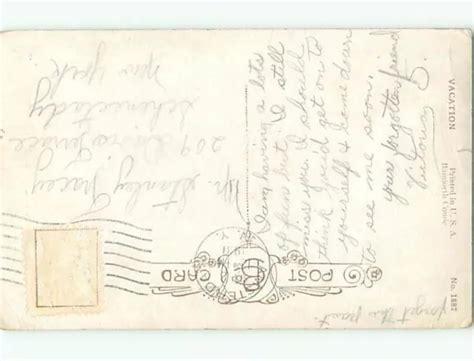 POST CARD
I am having a lots
of fun but I still
miss you. I should
think you'd get on to
yourself & come down
to see me soon.
your forgotten friend
Mr. Stanley
209
Schenectady
New York
forget this part.
VACATION
Printed in U. S. A.
No. 1887